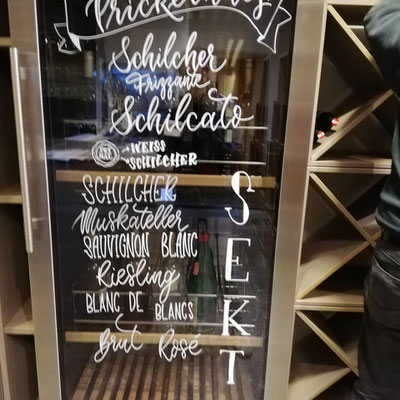 Prickelndes
Schilcher
Frizzante
Schilcato
→WEISS
→SCHILCHER
SCHILCHER
Muskateller
SAUVIGNON BLANC
Riesling
BLANC DE BLANCS
Brut Rosé
SEKT